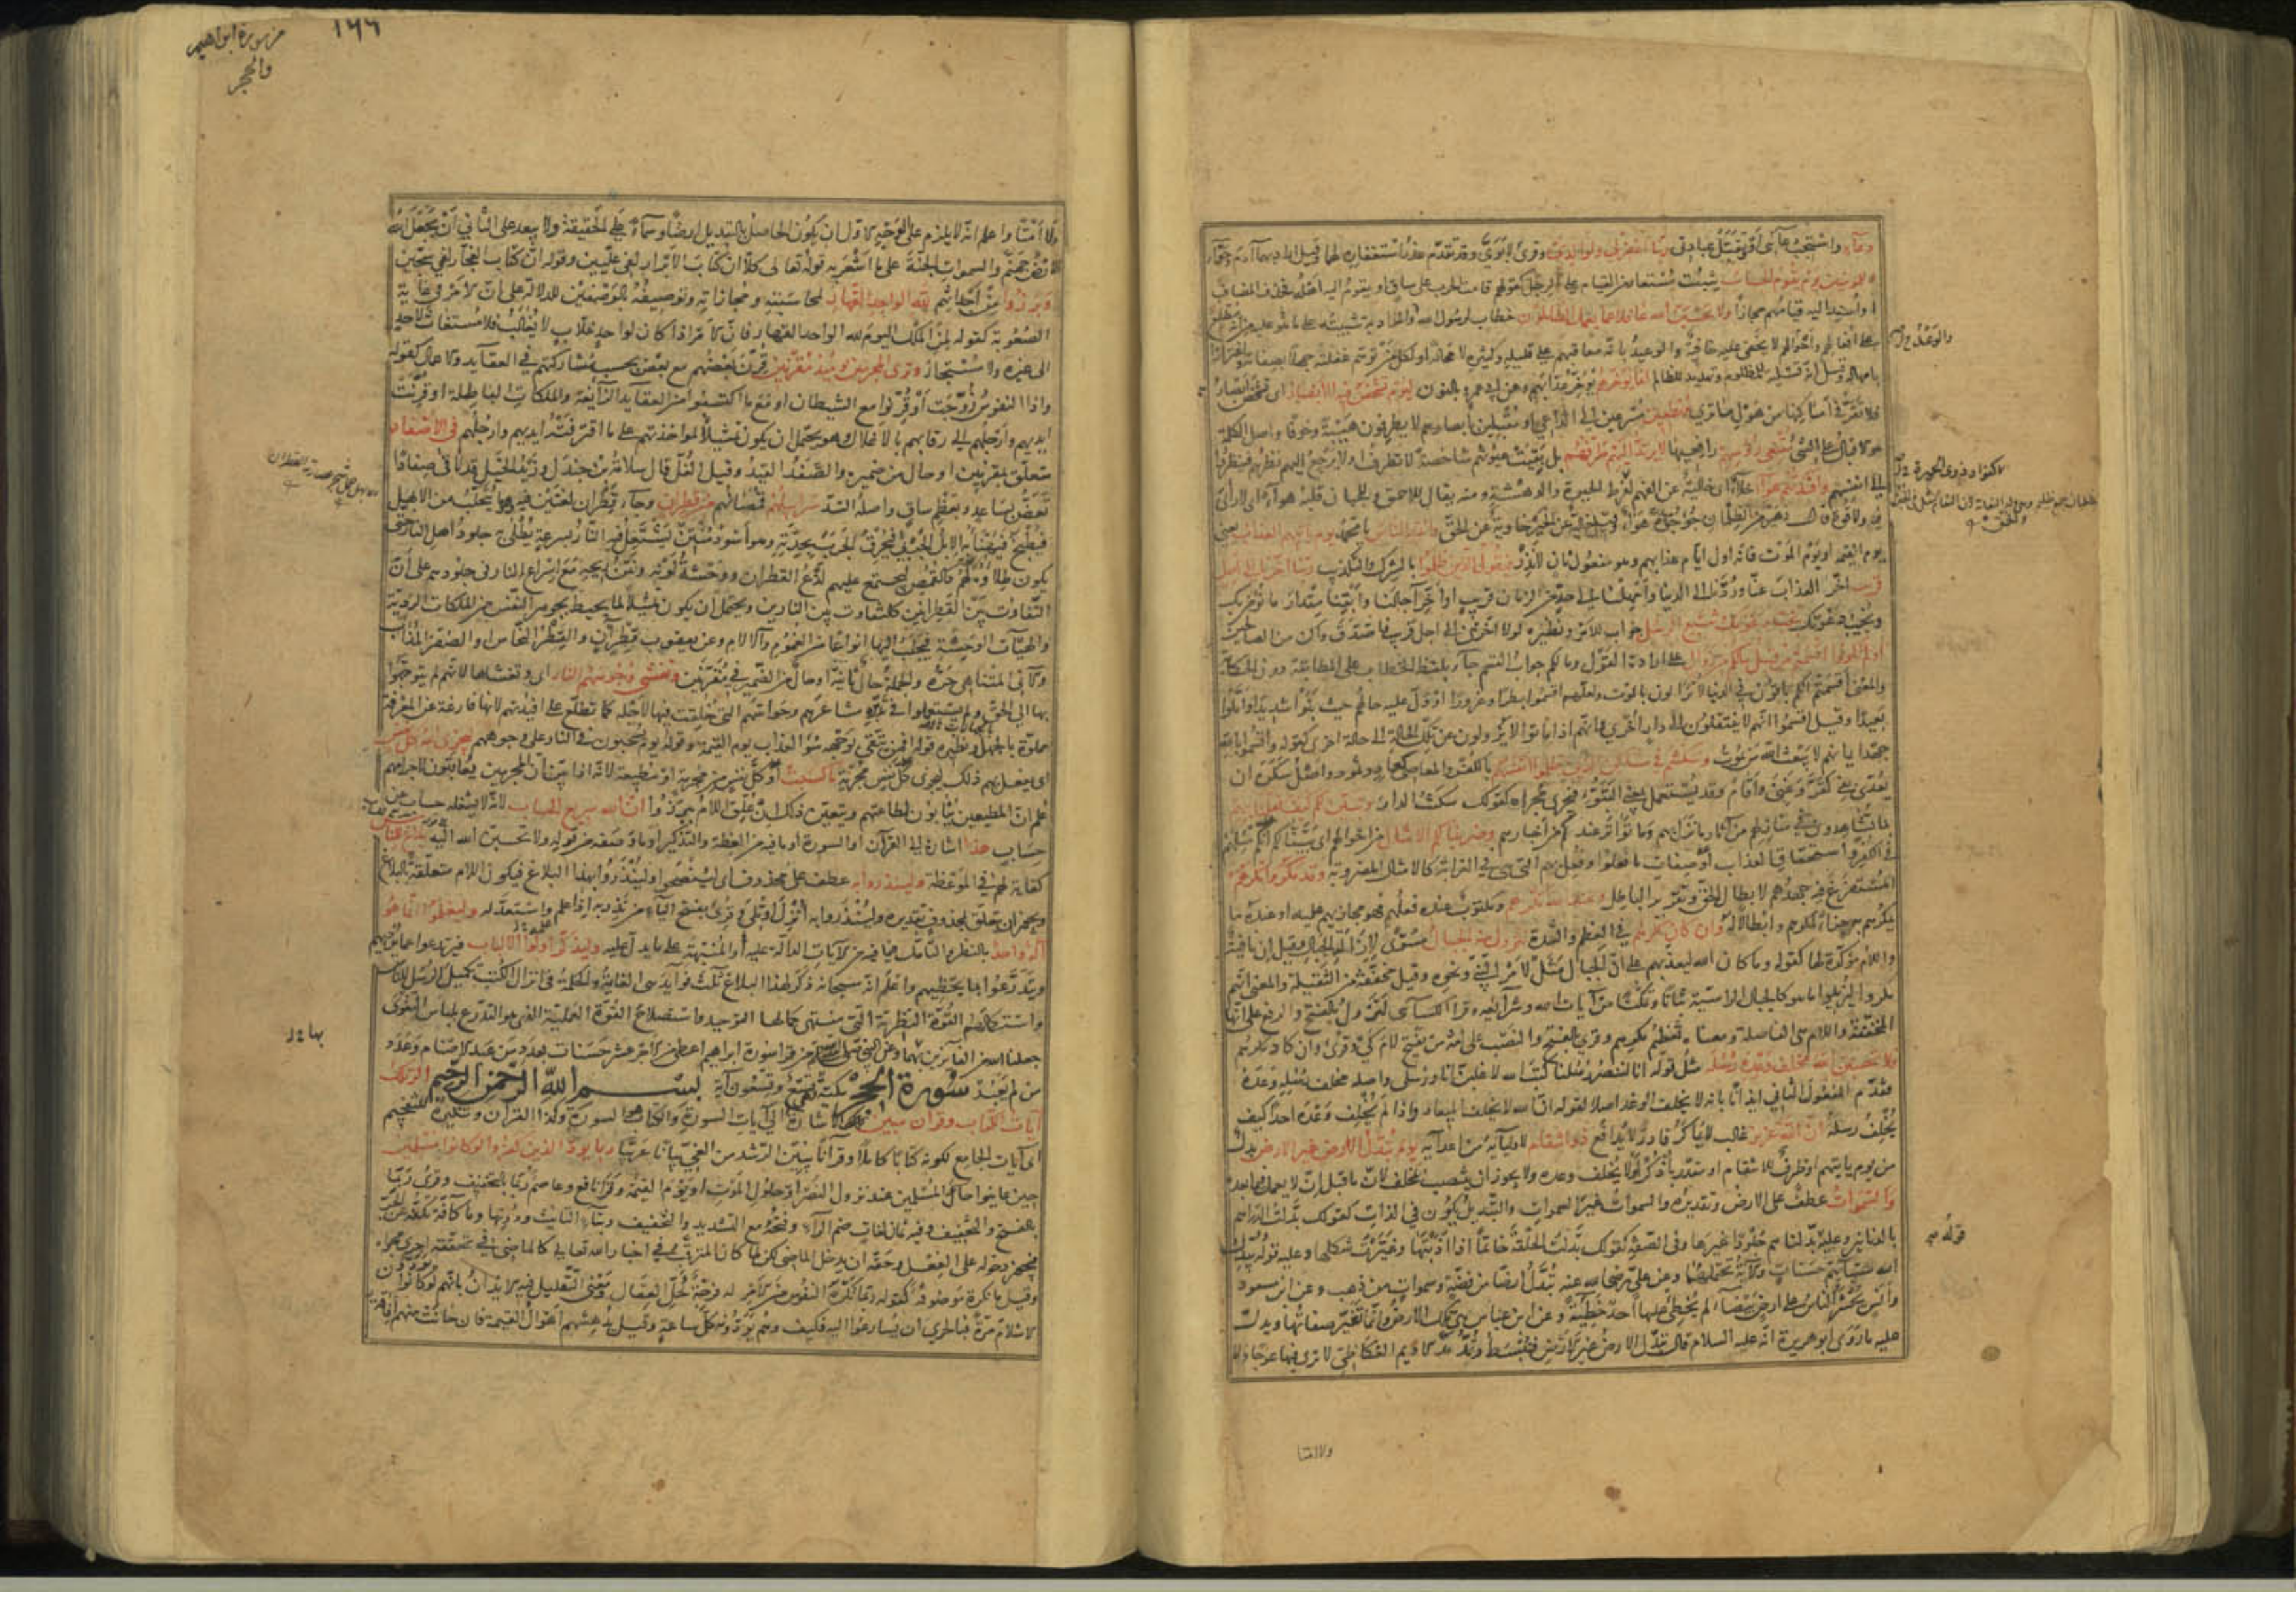 دعاء واستجب دعائي أو تقبل عبادتي ربنا اغفر لي ولوالدي وقرئ لأبوي وقد تقدم عذر استغفاره لهما وقيل أراد بهما آدم وحواء
وللمؤمنين يوم يقوم الحساب يثبت مستعار من القيام على الرجل كقولهم قامت الحرب على ساق أو يقوم إليه أهله فحذف المضاف
أو أسند إليه قيامهم مجازا ولا تحسبن الله غافلا عما يعمل الظالمون خطاب لرسول الله والمراد به تثبيته على ما هو عليه من أنه مطلع
على أفعالهم وأحوالهم لا يخفى عليه خافية والوعيد بأنه معاقبهم على قليله وكثيره لا محالة أو لكل من توهم غفلته جهلا بصفاته واغترارا
بإمهاله وقيل إنه تسلية للمظلوم وتهديد للظالم إنما يؤخرهم يؤخر عذابهم وعن أبي عمرو بالنون ليوم تشخص فيه الأبصار أي تشخص أبصارهم
فلا تقر في أماكنها من هول ما ترى مهطعين مسرعين إلى الداعي أو مقبلين بأبصارهم لا يطرفون هيبة وخوفا وأصل الكلمة
هو الإقبال على الشئ مقنعي رؤسهم رافعيها لا يرتد إليهم طرفهم بل بقيت عيونهم شاخصة لا تطرف أو لا يرجع إليهم نظرهم فينظروا
إلى أنفسهم وأفئدتهم هواء خلاء أي خالية عن الفهم لفرط الحيرة والدهشة ومنه يقال للأحمق وللجبان قلبه هواء أي لا رأي
فيه ولا قوة قال زهير من الظلمان جؤجؤه هواء وقيل خالية عن الخير خاوية عن الحق وأنذر الناس يا محمد يوم يأتيهم العذاب يعني
يوم القيمة أو يوم الموت فإنه أول أيام عذابهم وهو مفعول ثان لأنذر فيقول الذين ظلموا بالشرك والتكذيب ربنا أخرنا إلى أجل
قريب أخر العذاب عنا وردنا إلى الدنيا وأمهلنا إلى حد من الزمان قريب أو أخر آجالنا وأبقنا مقدار ما نؤمن بك
ونجيب دعوتك نجب دعوتك ونتبع الرسل جواب للأمر ونظيره لولا أخرتني إلى أجل قريب فأصدق وأكن من الصالحين
أولم تكونوا أقسمتم من قبل ما لكم من زوال على إرادة القول وما لكم جواب القسم جاء بلفظ الخطاب على المطابقة دون الحكاية
والمعنى أقسمتم أنكم باقون في الدنيا لا تزالون بالموت ولعلهم أقسموا بطرا وغرورا أو دل عليه حالهم حيث بنوا شديدا وأملوا
بعيدا وقيل أقسموا أنهم لا ينتقلون إلى دار أخرى وأنهم إذا ماتوا لا يزولون عن تلك الحالة إلى حالة أخرى كقوله وأقسموا بالله
جهد أيمانهم لا يبعث الله من يموت وسكنتم في مساكن الذين ظلموا أنفسهم بالكفر والمعاصي كعاد وثمود وأصل سكن أن
يعدى بفي كقر وغني وأقام وقد يستعمل بمعنى التبوء فيجري مجراه كقولك سكنت الدار وتبين لكم كيف فعلنا بهم
بما تشاهدون في منازلهم من آثار ما نزل بهم وما تواتر عندكم من أخبارهم وضربنا لكم الأمثال من أحوالهم أي بينا لكم أنكم مثلهم
في الكفر واستحقاق العذاب أو صفات ما فعلوا وفعل بهم التي هي في الغرابة كالأمثال المضروبة وقد مكروا مكرهم
المستفرغ فيه جهدهم لإبطال الحق وتقرير الباطل وعند الله مكرهم ومكتوب عنده فعلهم فهو مجازيهم عليه أو عنده ما
يمكرهم به جزاء لمكرهم وإبطالا له وإن كان مكرهم في العظم والشدة لتزول منه الجبال مسوى لإزالة الجبال وقيل إن نافية
واللام مؤكدة لها كقوله وما كان الله ليعذبهم على أن الجبال مثل لأمر النبي ونحوه وقيل مخففة من الثقيلة والمعنى أنهم
مكروا ليزيلوا ما هو كالجبال الراسية ثباتا وتمكنا من آيات الله وشرائعه وقرأ الكسائي لتزول بالفتح والرفع على أنها
المخففة واللام هي الفاصلة ومعناه تعظيم مكرهم وقرئ بالفتح والنصب على لغة من يفتح لام كي وقرئ وإن كاد مكرهم
ولا تحسبن الله مخلف وعده رسله مثل قوله إنا لننصر رسلنا كتب الله لأغلبن أنا ورسلي وأصله مخلف رسله وعده
فقدم المفعول الثاني إيذانا بأنه لا يخلف الوعد أصلا لقوله إن الله لا يخلف الميعاد وإذا لم يخلف وعده أحدا كيف
يخلف رسله إن الله عزيز غالب لا يماكر قادر لا يدافع ذو انتقام لأوليائه من أعدائه يوم تبدل الأرض غير الأرض بدل
من يوم يأتيهم أو ظرف للانتقام أو مقدر باذكر أو لا يخلف وعده ولا يجوز أن ينتصب بمخلف لأن ما قبل إن لا يعمل فيما بعده
والسموات عطف على الأرض وتقديره والسموات غير السموات والتبديل يكون في الذات كقولك بدلت الدراهم
بالدنانير وعليه بدلناهم جلودا غيرها وفي الصفة كقولك بدلت الحلقة خاتما إذا أذبتها وغيرت شكلها وعليه قوله يبدل
الله سيئاتهم حسنات والآية تحتملهما وعن علي رضي الله عنه تبدل أرضا من فضة وسموات من ذهب وعن ابن مسعود
وأنس يحشر الناس على أرض بيضاء لم يخطئ عليها أحد خطيئة وعن ابن عباس هي تلك الأرض وإنما تغير صفاتها ويدل
عليه ما روى أبو هريرة أنه عليه السلام قال تبدل الأرض غير الأرض فتبسط وتمد مد الأديم العكاظي لا ترى فيها عوجا ولا
قوله
من سورة ابراهيم
والحجر
١٦٦
ولا أمتا واعلم أنه لا يلزم على الوجه الأول أن يكون الحاصل بالتبديل أرضا وسماء على الحقيقة ولا يبعد على الثاني أن يجعل الله
الأرض جهنم والسموات الجنة على ما أشعر به قوله تعالى كلا إن كتاب الأبرار لفي عليين وقوله إن كتاب الفجار لفي سجين
وبرزوا من أجداثهم لله الواحد القهار لمحاسبته ومجازاته وتوصيفه بالوصفين للدلالة على أن الأمر في غاية
الصعوبة كقوله لمن الملك اليوم لله الواحد القهار فإن الأمر إذا كان لواحد غلاب لا يغالب فلا مستغاث لأحد
إلى غيره ولا مستجار وترى المجرمين يومئذ مقرنين قرن بعضهم مع بعض بحسب مشاركتهم في العقايد والأعمال كقوله
وإذا النفوس زوجت أو قرنوا مع الشيطان أو مع ما اكتسبوا من العقايد الزائغة والملكات الباطلة أو قرنت
أيديهم وأرجلهم إلى رقابهم بالأغلال وهو يحتمل أن يكون تمثيلا لمؤاخذتهم على ما اقترفته أيديهم وأرجلهم في الأصفاد
متعلق بمقرنين أو حال من ضميره والصفد القيد وقيل الغل قال سلامة بن جندل وزيد الخيل قد لاقى صفادا
يعض بساعد وبعظم ساق وأصله الشد سرابيلهم قمصانهم من قطران وجاء قطران لغتين فيه وهو ما يتحلب من الأبهل
فيطبخ فيهنأ به الإبل الجربى فيحرق الجرب بحدته وهو أسود منتن يشتعل فيه النار بسرعة يطلى به جلود أهل النار حتى
يكون طلاؤه لهم كالقمص ليجتمع عليهم لذع القطران ووحشة لونه ونتن ريحه مع إسراع النار في جلودهم على أن
التفاوت بين القطرانين كالتفاوت بين النارين ويحتمل أن يكون تمثيلا لما يحيط بجوهر النفس من الملكات الردية
والهيآت الوحشية فيجلب إليها أنواعا من الغموم والآلام وعن يعقوب قطر آن والقطر النحاس أو الصفر المذاب
والآني المتناهي حره والجملة حال ثانية أو حال من الضمير في مقرنين وتغشى وجوههم النار أي وتغشاها لأنهم لم يتوجهوا
بها إلى الحق ولم يستعملوا في تدبره مشاعرهم وحواسهم التي خلقت فيها لأجله كما تطلع على أفئدتهم لأنها فارغة عن المعرفة
مملوة بالجهالات ونظيره قوله أفمن يتقي بوجهه سوء العذاب يوم القيمة وقوله يوم يسحبون في النار على وجوههم ليجزي الله كل نفس
أي يفعل بهم ذلك ليجزي كل نفس مجرمة ما كسبت أو كل نفس من مجرمة أو مطيعة لأنه إذا بين أن المجرمين يعاقبون لإجرامهم
علم أن المطيعين يثابون لطاعتهم ويتعين ذلك إن علق اللام ببرزوا إن الله سريع الحساب لأنه لا يشغله حساب عن
حساب هذا إشارة إلى القرآن أو السورة أو ما فيه من العظة والتذكير أو ما وصفه من قوله ولا تحسبن الله بلاغ للناس
كفاية لهم في الموعظة ولينذروا به عطف على محذوف أي لينصحوا ولينذروا بهذا البلاغ فيكون اللام متعلقة بالبلاغ
ويجوز أن يتعلق بمحذوف تقديره ولينذروا به أنزل أو تلي وقرئ بفتح الياء من نذر به إذا علم واستعد له وليعلموا أنما هو
إله واحد بالنظر والتأمل فيما فيه من الآيات الدالة عليه أو المنبهة على ما يدل عليه وليذكر أولوا الألباب فيرتدعوا عما يرديهم
ويتدرعوا بما يحظيهم واعلم أنه سبحانه ذكر لهذا البلاغ ثلث فوآيد هي الغاية والحكمة في إنزال الكتب تكميل الرسل للناس
واستكمالهم القوة النظرية التي منتهى كمالها التوحيد واستصلاح القوة العملية الذي هو التدرع بلباس التقوى
جعلنا الله من الفائزين بهما وعن النبي صلى الله عليه وسلم من قرأ سورة ابراهيم أعطي من الأجر عشر حسنات بعدد من عبد الأصنام وعدد
من لم يعبد سورة الحجر مكية وهي تسع وتسعون آية بسم الله الرحمن الرحيم الر تلك
آيات الكتاب وقرآن مبين الإشارة إلى آيات السورة والكتاب هو السورة وكذا القرآن وتنكيره للتفخيم
أي آيات الجامع لكونه كتابا كاملا وقرآنا يبين الرشد من الغي بيانا غريبا ربما يود الذين كفروا لو كانوا مسلمين
حين عاينوا حال المسلمين عند نزول النصر أو حلول الموت أو يوم القيمة وقرأ نافع وعاصم ربما بالتخفيف وقرئ ربما
بالفتح والتخفيف وفيه ثمان لغات ضم الراء وفتحه مع التشديد والتخفيف وبتاء التأنيث ودونها وما كافة تكفه عن الجر
فيجوز دخوله على الفعل وحقه أن يدخل الماضي لكن لما كان المترقب في إخبار الله تعالى كالماضي في تحققه أجري مجراه
وقيل ما نكرة موصوفة كقوله ربما تكره النفوس من الأمر له فرجة كحل العقال ومعنى التقليل فيه الإيذان بأنهم لو كانوا يودون
الإسلام مرة فبالحري أن يسارعوا إليه فكيف وهم يودونه كل ساعة وقيل يدهشهم أهوال القيمة فإن حانت منهم إفاقة